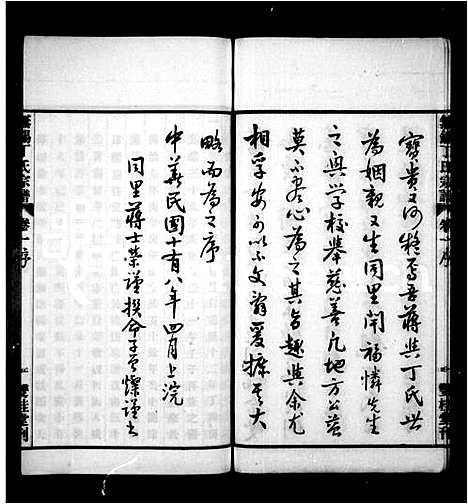 寶貴又何疑焉吾蔣與丁氏世
為姻親又生同里開福憐先生
之興學校舉慈善凡地方公益
莫不盡心為之其旨趣與余尤
相孚安可以不文辭爰攄其大
略而為之序
中華民國十有八年四月上浣
同里蔣士榮謹撰命子曾燦謹書
丁氏宗譜
卷一序
一
雙桂堂刊